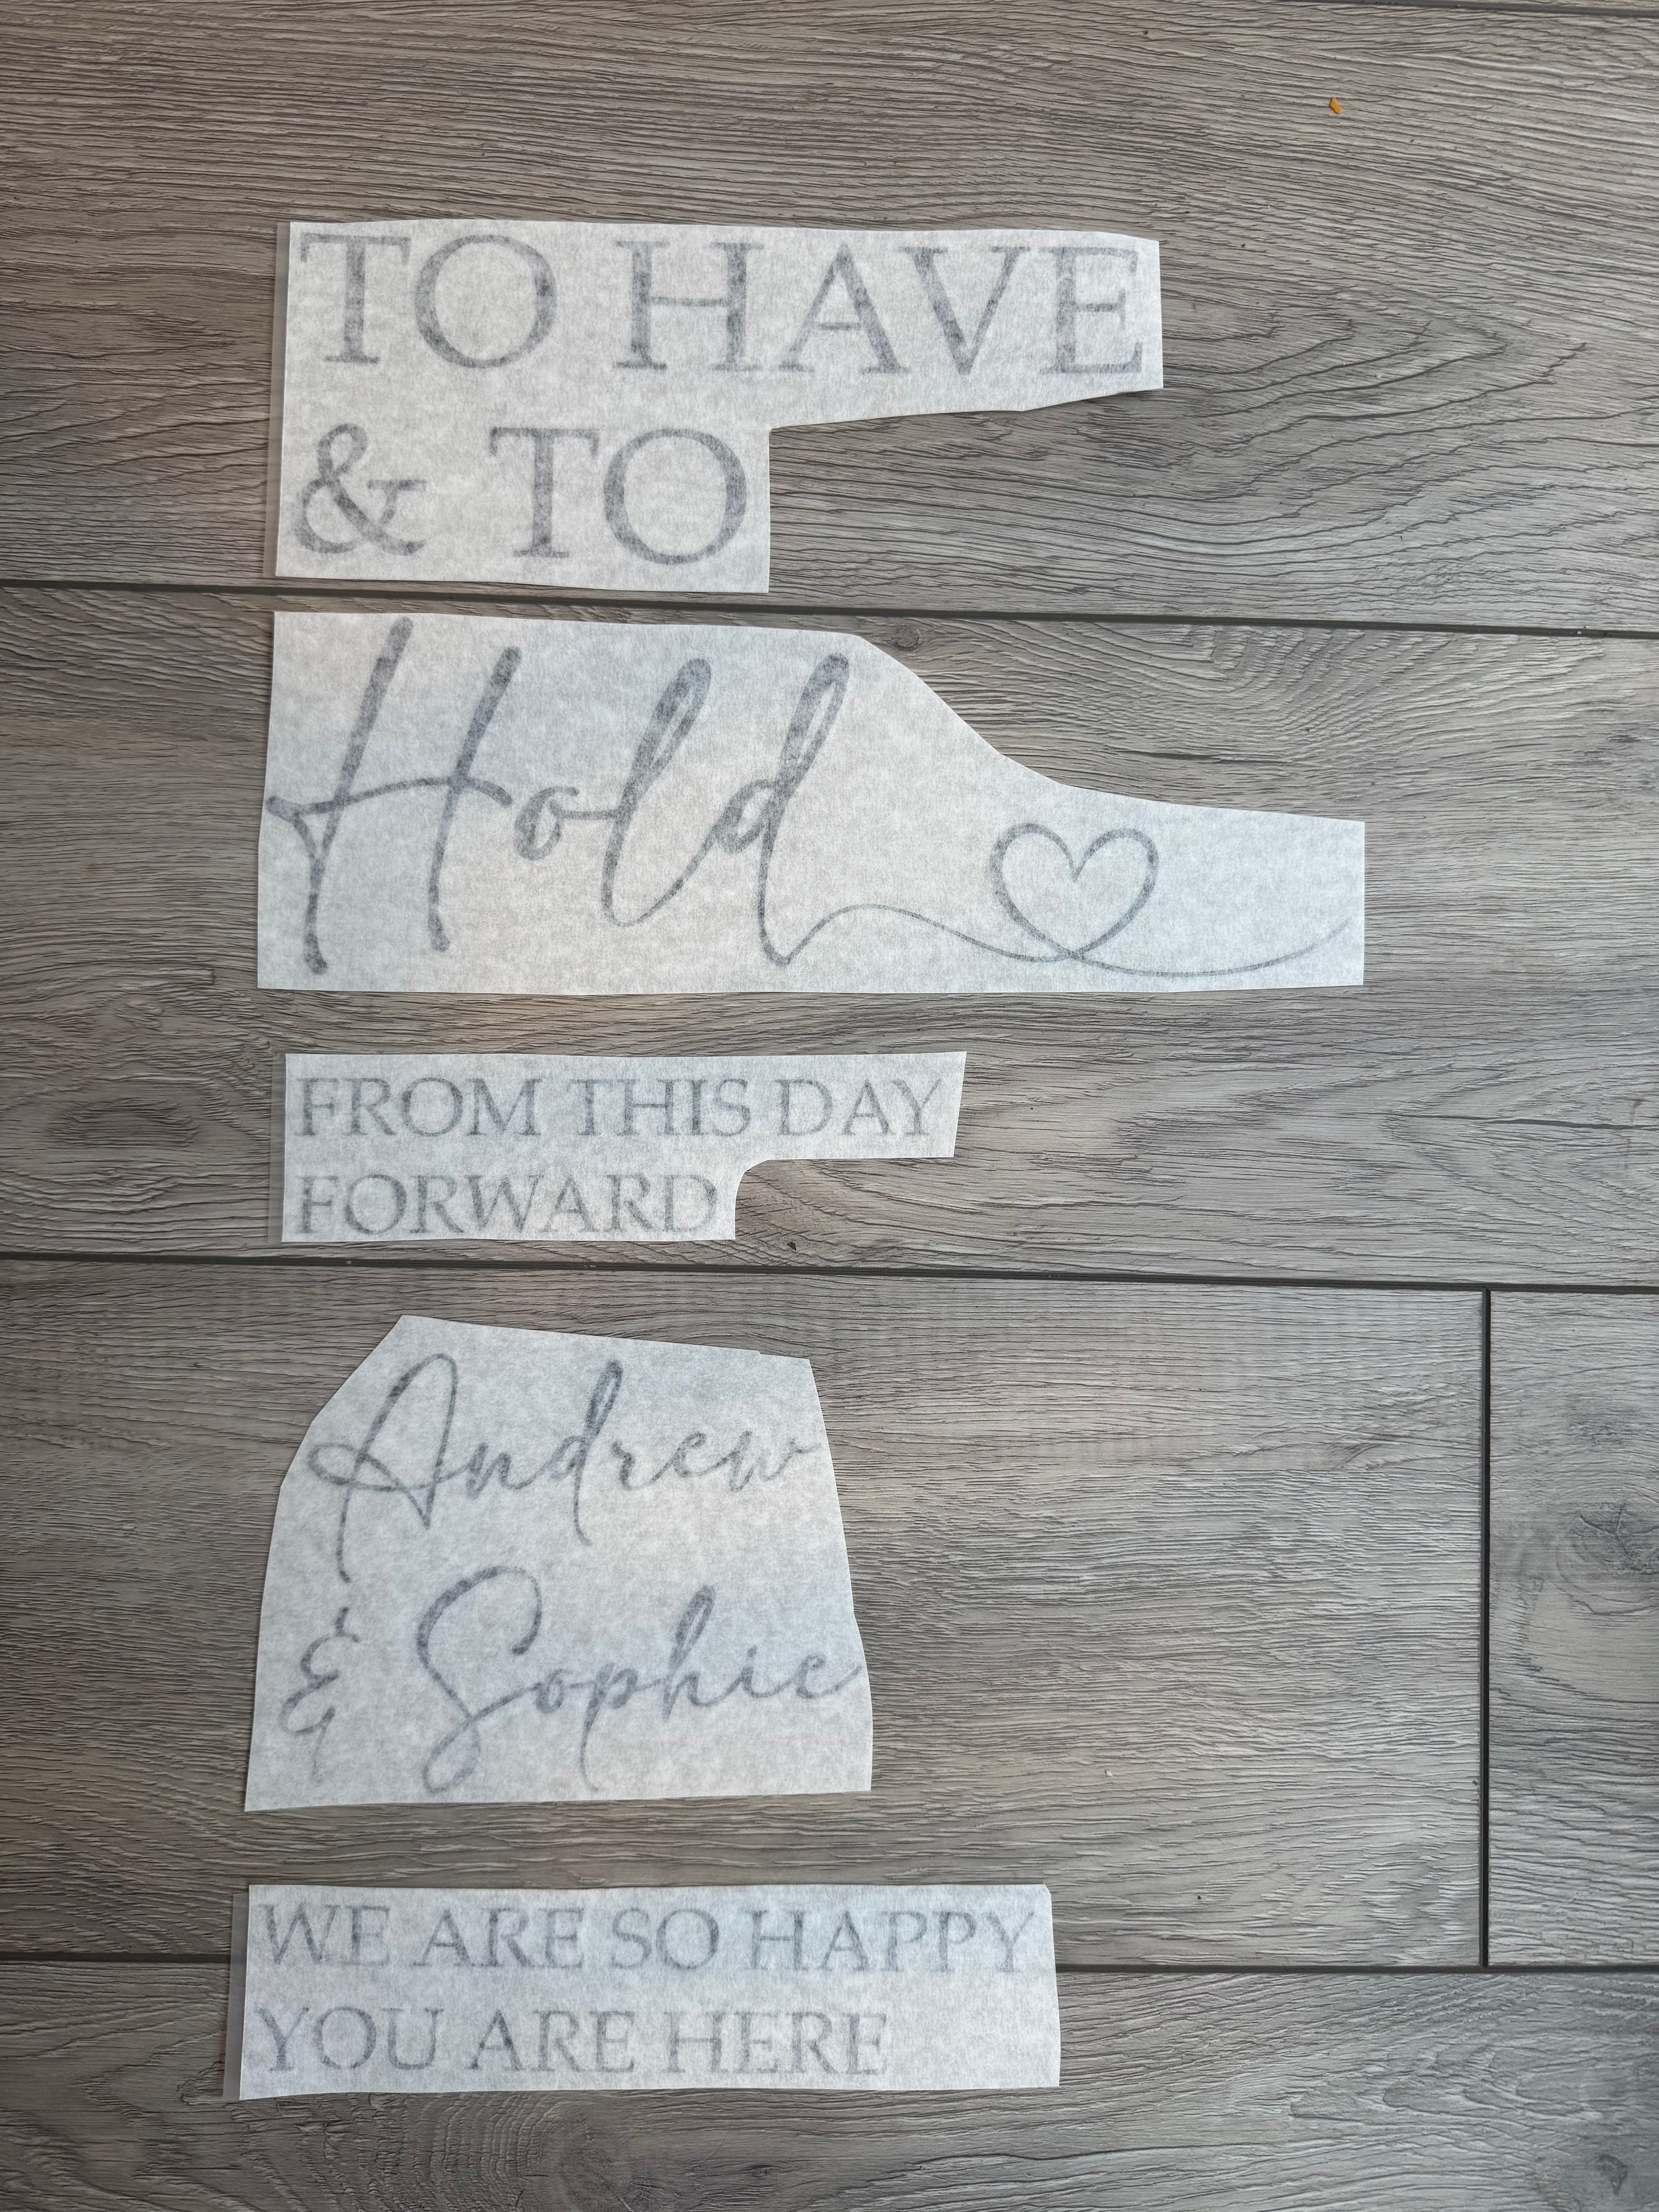 TO HAVE
& TO
Hold
FROM THIS DAY
FORWARD
Andrew
& Sophie
WE ARE SO HAPPY
YOU ARE HERE